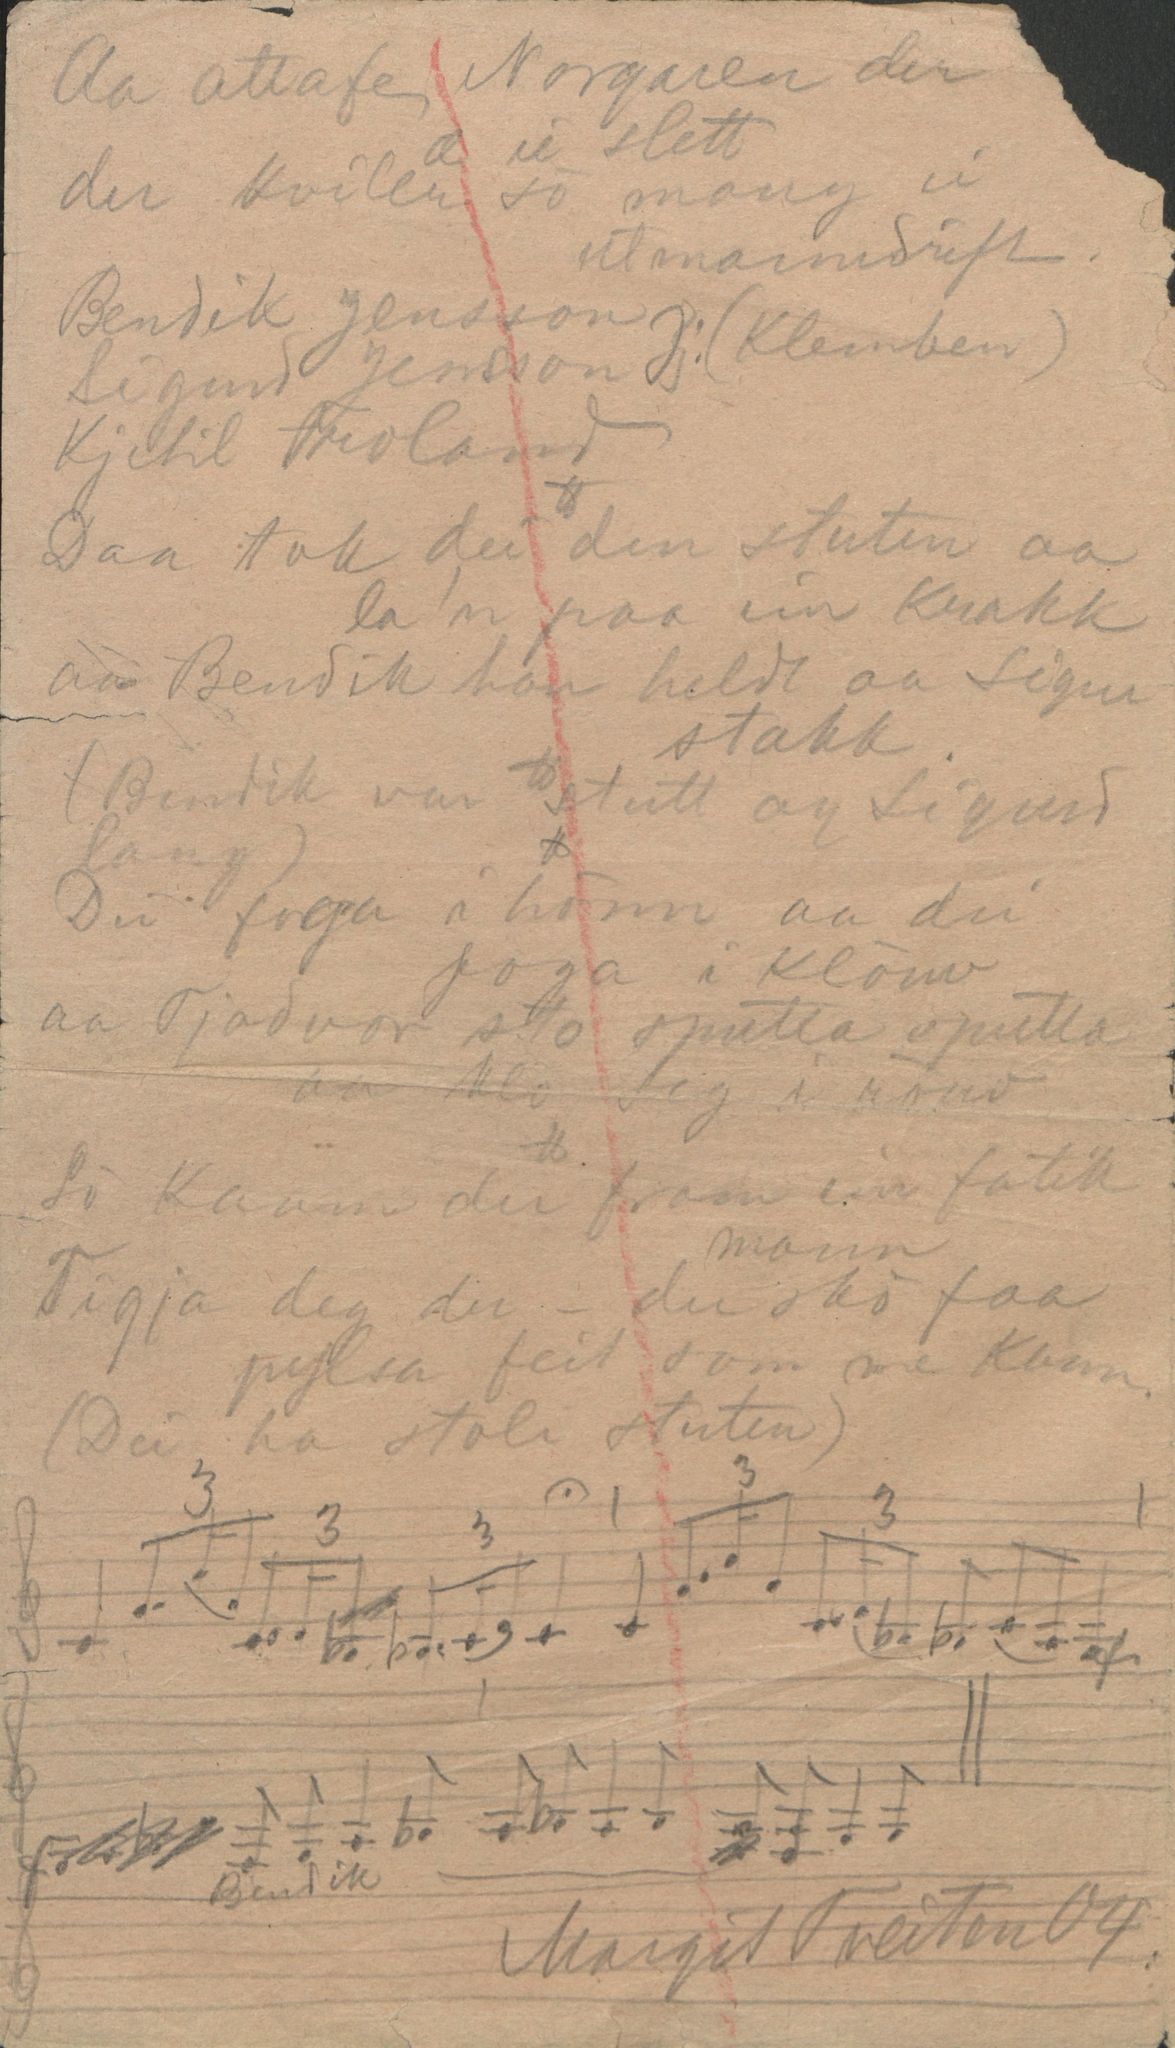 Aa attafe Norgaren der
æ ei slett
der kviler so mang ei
utmarmdrift.
Bendik Jensson
Sigurd Jensson J: (Klemben)
Kjetil Froland
Daa tok dei den stuten aa
la'n paa ein Krakk
aa Bendik han heldt aa Sigur
stakk.
(Bendik var stutt og Sigurd
lang)
Dei foga i hönn aa dei
foga i Klöuv
aa Tjodvor sto sputta sputta
aa klo seg i röuv
So Kaam der fram ein fatik
mann
Tigja deg du - du sko faa
pylsa feit som me Kann.
(Dei ha stole stuten)
3 3 3 3 3
Bendik
Margit Tveiten 04.